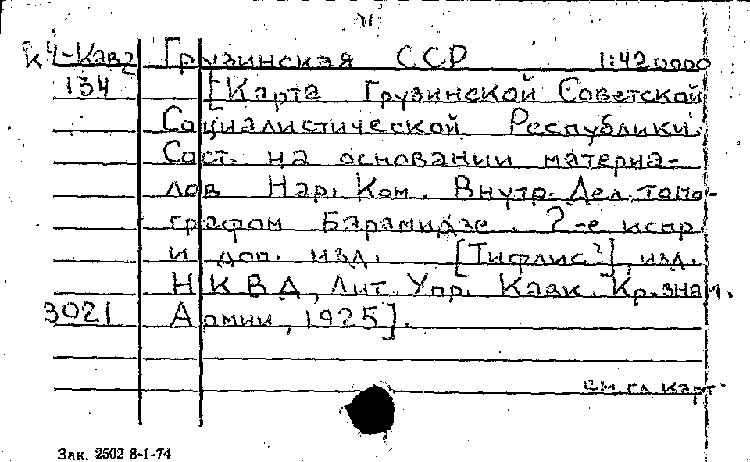 К4-Кав2 Грузинская ССР 1:420000
134 [Карта Грузинской Советской
Социалистической Республики.
Сост. на основании материа-
лов Нар. Ком. Внутр. Дел топо-
графом Барамидзе. 2-е испр
и доп. изд. [Тифлис?], изд.
НКВД, Лит. Упр. Кавк. Кр. знам.
3021 Армии, 1925].
см. гл. карт.
Зак. 2502 8-1-74